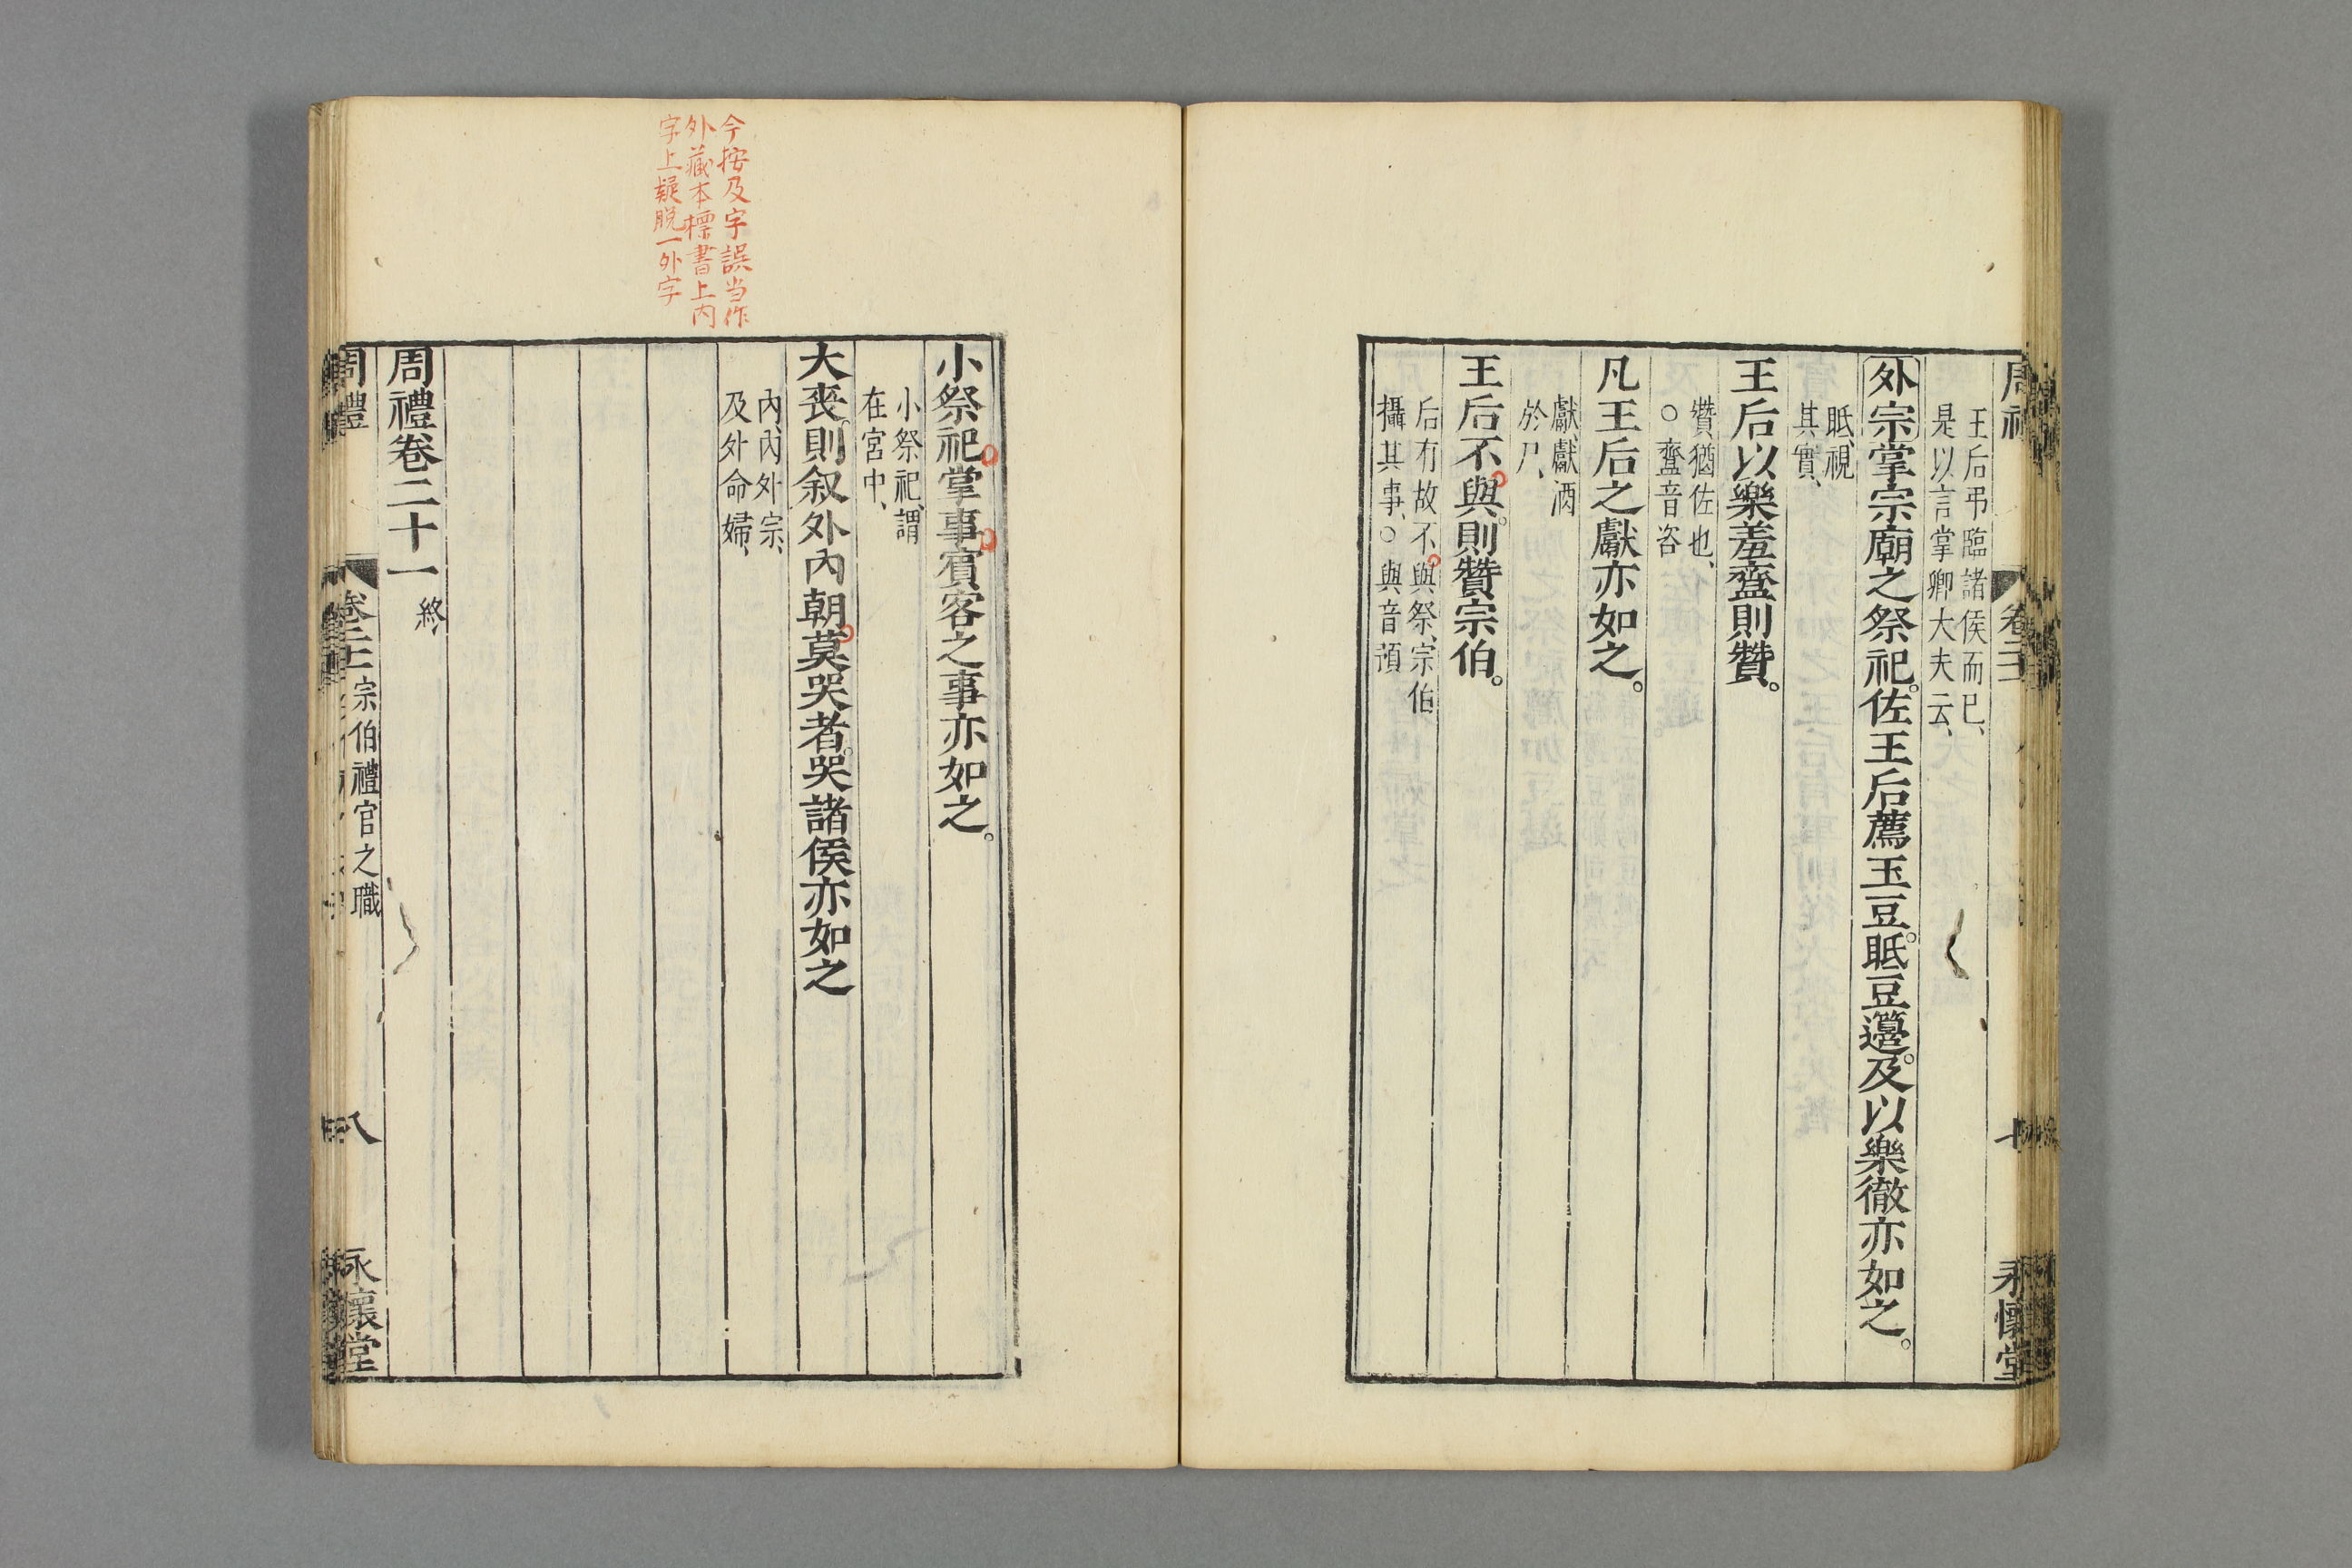 王后弔臨諸侯而已、
是以言掌卿大夫云、
外宗掌宗廟之祭祀。佐王后薦玉豆。眂豆籩。及以樂徹亦如之。
眂、視
其實、
王后以樂羞齍則贊。
贊猶佐也、
○齍音咨
凡王后之獻亦如之。
獻、獻酒
於尸、
王后不與。則贊宗伯。
后有故不與祭、宗伯
攝其事、○與音預
永懷堂
今按及字誤当作
外藏本標書上内
字上疑脱一外字
小祭祀掌事賓客之事亦如之。
小祭祀、謂
在宮中、
大喪則叙外內朝莫哭者。哭諸侯亦如之
內、內外宗、
及外命婦、
周禮卷二十一 終
周禮 卷二十一 宗伯禮官之職 八 永懷堂